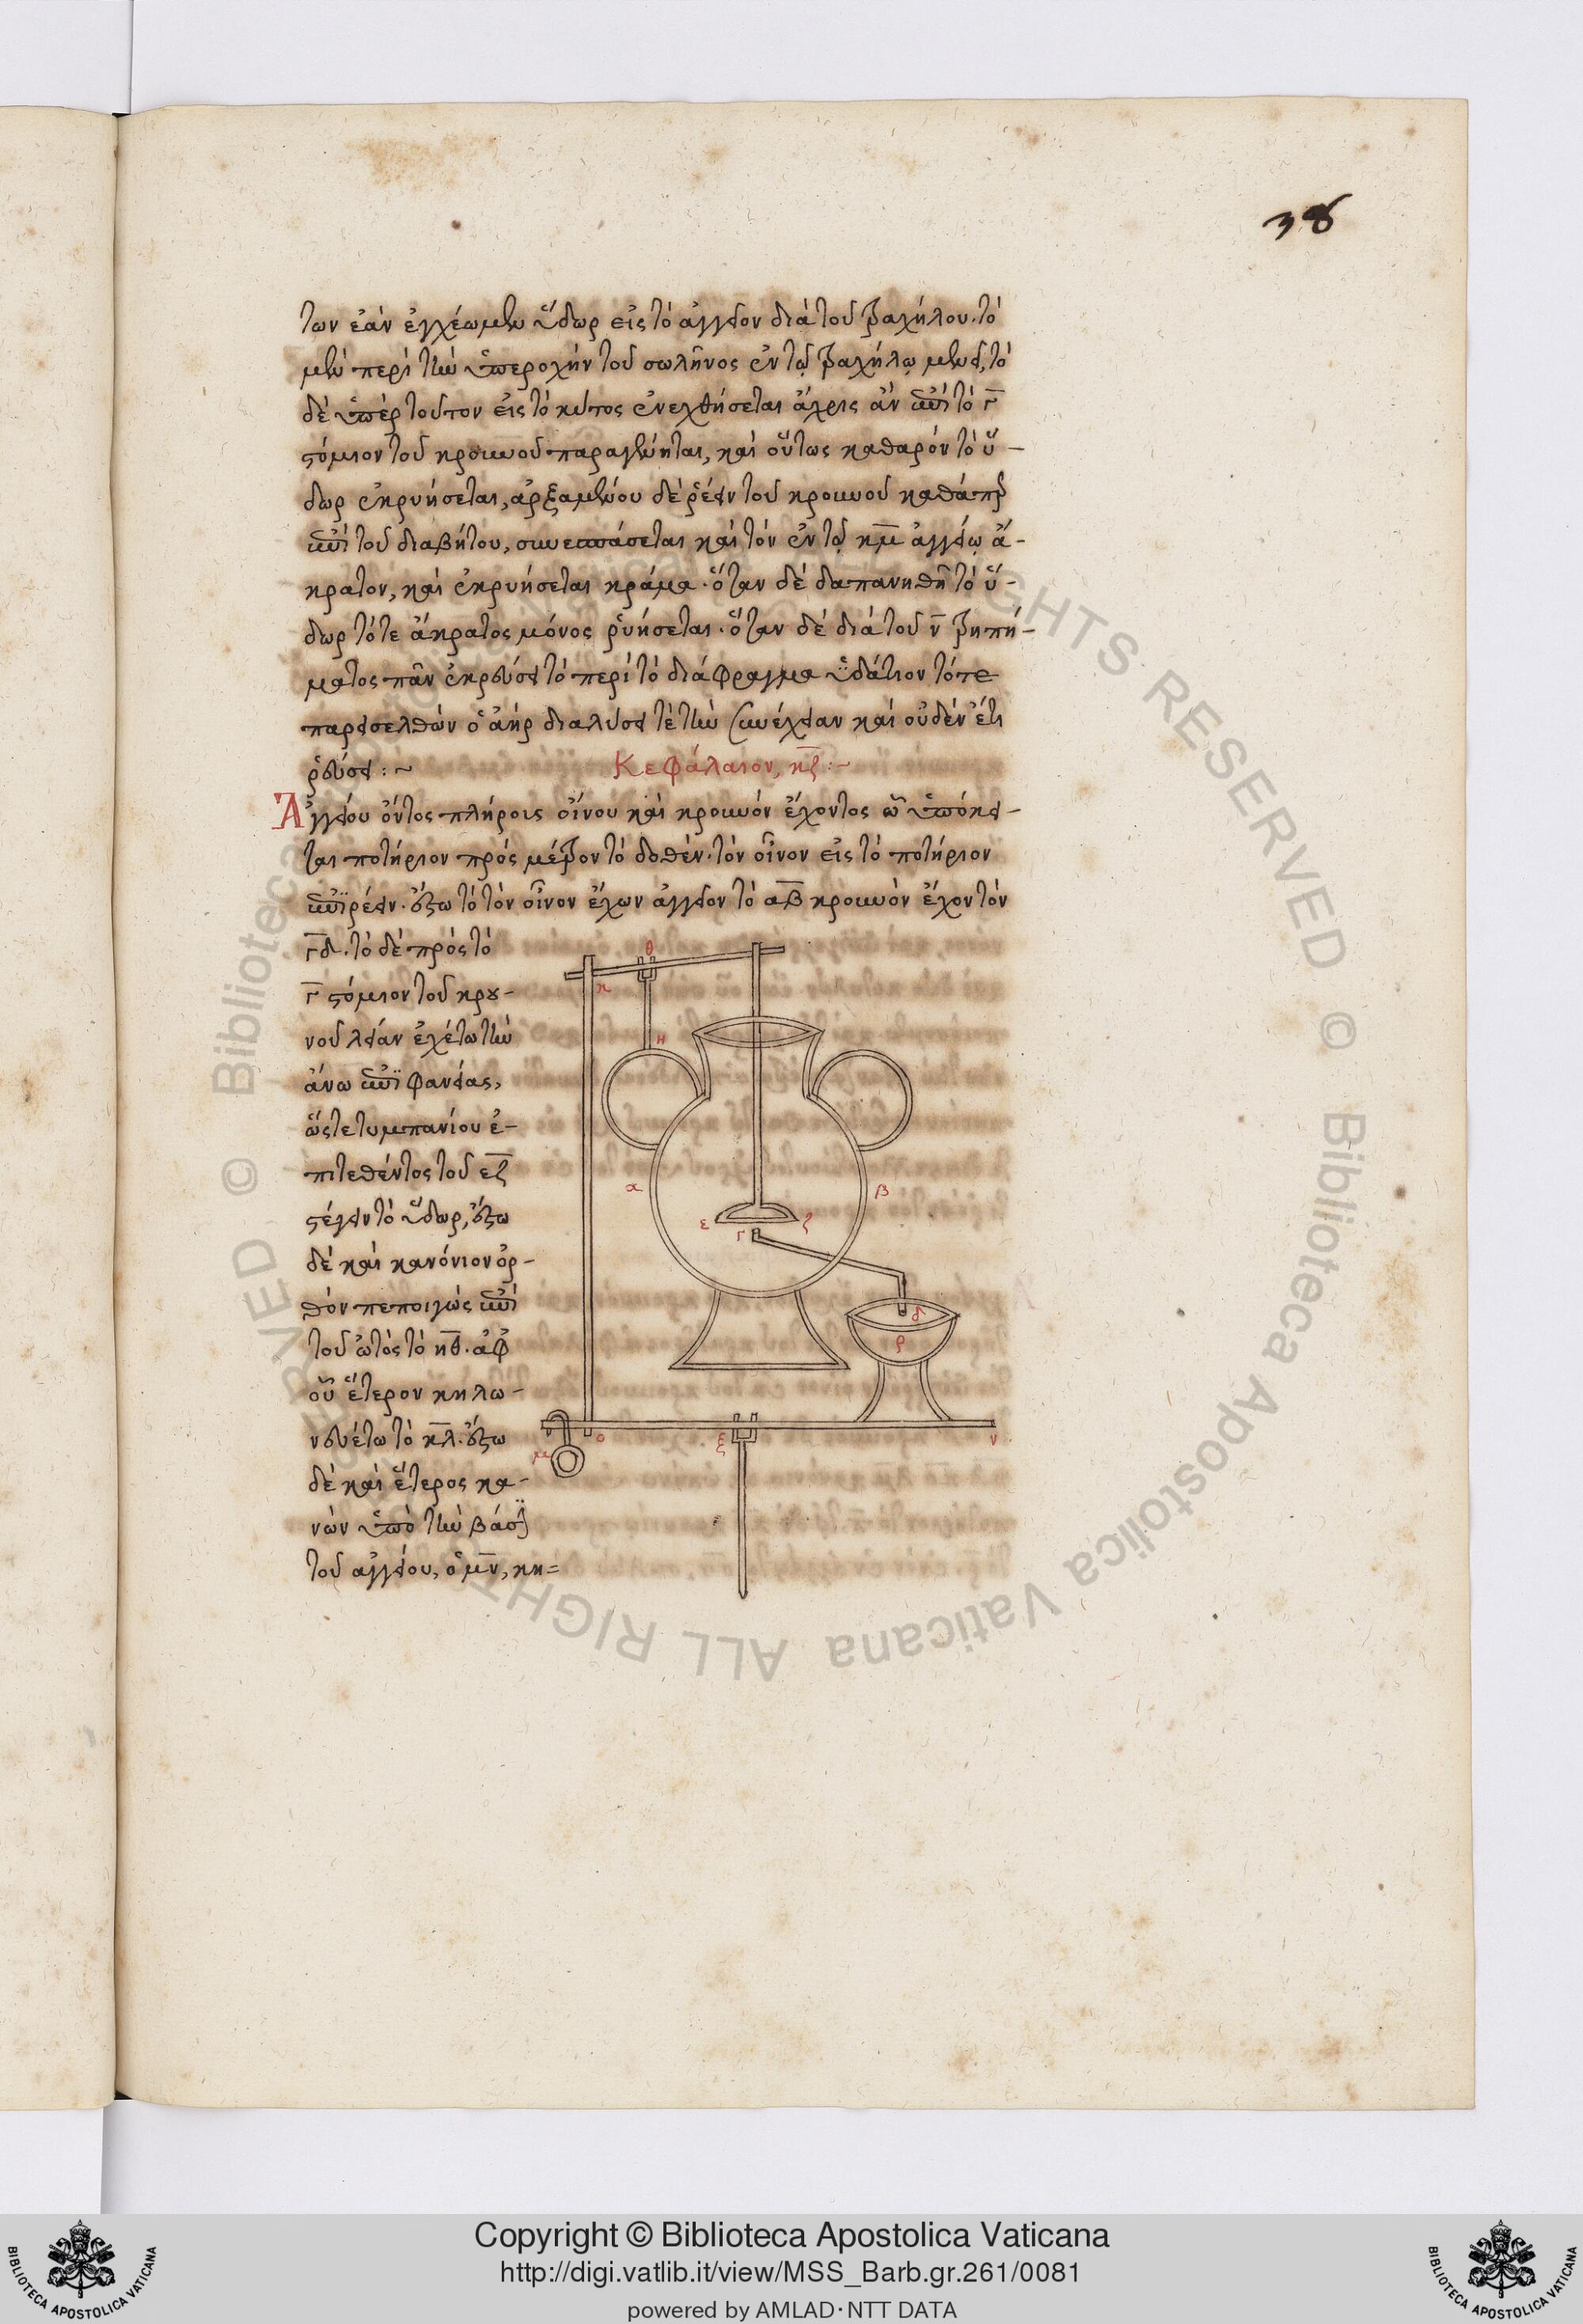 38
των ἐὰν ἐγχέωμεν ὕδωρ εἰς τὸ ἀγγεῖον διὰ τοῦ τραχήλου. τὸ
μὲν περὶ τὴν ὑπεροχὴν τοῦ σωλῆνος ἐν τῷ τραχήλῳ μένει, τὸ
δὲ ὑπὲρ τοῦτον εἰς τὸ κύτος ἐνεχθήσεται ἄχρις ἂν ἐπὶ τὸ γ̅
στόμιον τοῦ κρουνοῦ παραγένηται, καὶ οὕτως καθαρὸν τὸ ὕ-
δωρ ἐκρυήσεται, ἀρξαμένου δὲ ῥέειν τοῦ κρουνοῦ καθάπερ
ἐπὶ τοῦ διαβήτου, συνεπισπάσεται καὶ τὸν ἐν τῷ κμ̅ ἀγγείῳ ἄ-
κρατον, καὶ ἐκρυήσεται κράμα. ὅταν δὲ δαπανηθῇ τὸ ὕ-
δωρ τότε ἄκρατος μόνος ῥυήσεται. ὅταν δὲ διὰ τοῦ ν̅ τρυπή-
ματος πᾶν ἐκρεύσει τὸ περὶ τὸ διάφραγμα ὑδάτιον τότε
παρεισελθὼν ὁ ἀὴρ διαλύσει τὲ τὴν συνέχειαν καὶ οὐδὲν ἔτι
ῥεύσει :~ Κεφάλαιον, κζ̅ :~
Ἀγγείου ὄντος πλήροις οἴνου καὶ κρουνὸν ἔχοντος ᾧ ὑπόκει-
ται ποτήριον πρὸς μέτρον τὸ δοθὲν. τὸν οἶνον εἰς τὸ ποτήριον
ἐπιρέειν. ἔστω τὸ τὸν οἶνον ἔχων ἀγγεῖον τὸ αβ̅ κρουνὸν ἔχον τὸν
γ̅δ. τὸ δὲ πρὸς τὸ
γ̅ στόμιον τοῦ κρου-
νοῦ λείαν ἐχέτω τὴν
ἄνω ἐπιφανείας,
ὥστε τυμπανίου ἐ-
πιτεθέντος τοῦ εζ̅
στέγειν τὸ ὕδωρ, ἔστω
δὲ καὶ κανόνιον ὀρ-
θὸν πεποιγὼς ἐπὶ
τοῦ ὠτὸς τὸ ηθ̅. ἀφ
οὗ ἕτερον κηλω-
νευέτω τὸ κ̅λ. ἔστω
δὲ καὶ ἕτερος κα-
νὼν ὑπὸ τὴν βάσιν
τοῦ αγγείου, ὁ μν̅, κη=
θ
κ
η
α
β
ε
ζ
γ
δ
ρ
μ
ο
ξ
ν
© Biblioteca Apostolica Vaticana ALL RIGHTS RESERVED
Copyright © Biblioteca Apostolica Vaticana
http://digi.vatlib.it/view/MSS_Barb.gr.261/0081
powered by AMLAD·NTT DATA
BIBLIOTECA APOSTOLICA VATICANA
BIBLIOTECA APOSTOLICA VATICANA